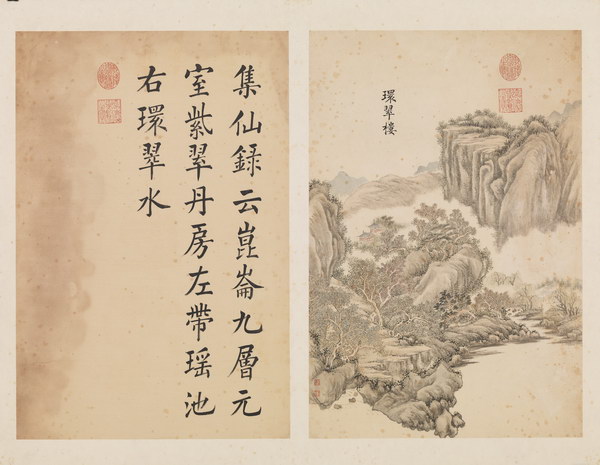 環翠樓
集仙録云崑崙九層元
室紫翠丹房左帶瑶池
右環翠水